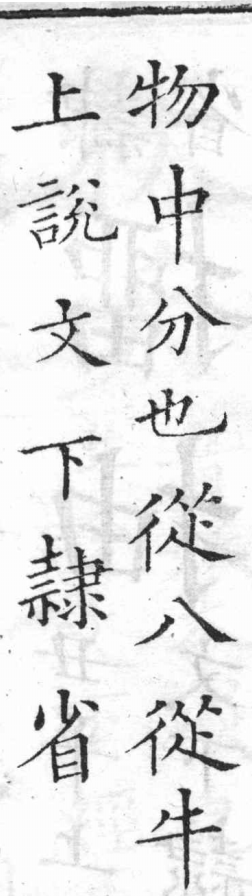 物中分也從八從牛
上說文下隸省